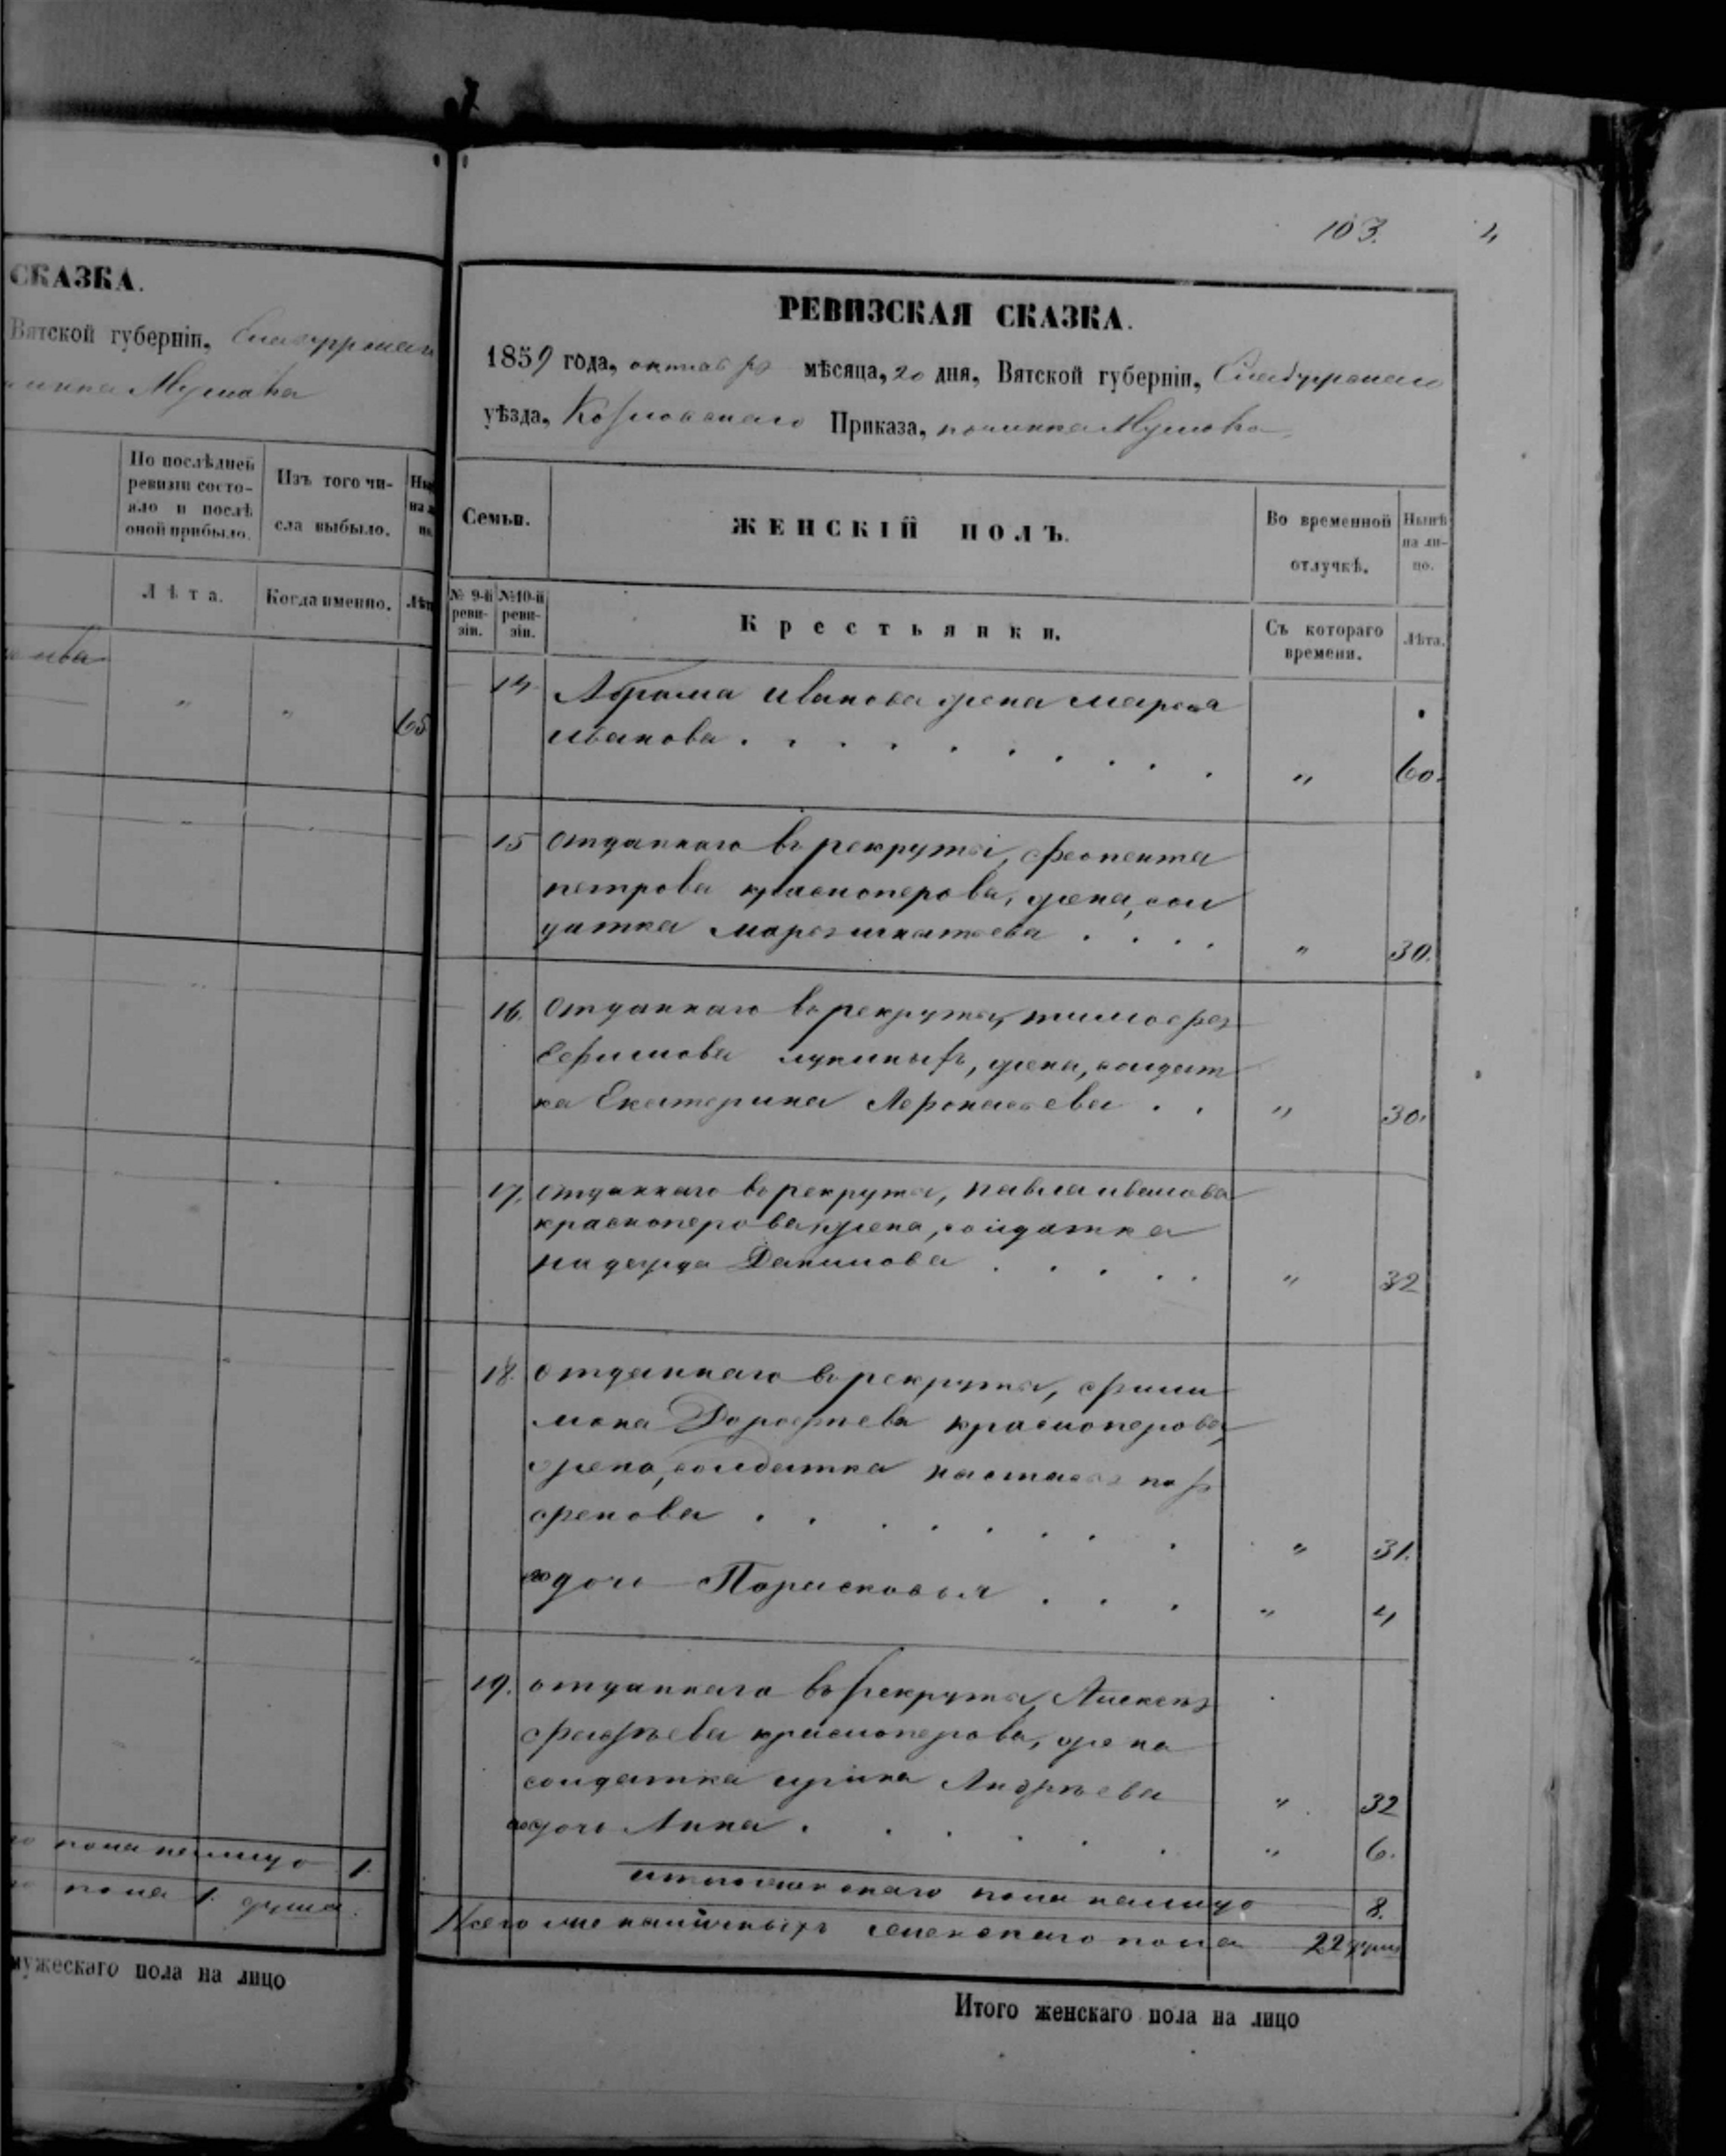 103.
4
СКАЗКА.
Вятской губерніи,
починка Мушака
По послѣдней
ревизіи состо-
яло и послѣ
оной прибыло.
Изъ того чи-
сла выбыло.
Лѣта.
Когда именно.
" " 65
пола налицо 1.
пола 1. душа.
мужескаго пола на лицо
РЕВИЗСКАЯ СКАЗКА.
1859 года, октября мѣсяца, 20 дня, Вятской губерніи,
уѣзда, Козловскаго Приказа, починка Мушака
Семьи.
ЖЕНСКІЙ ПОЛЪ.
Во временной
отлучкѣ.
Нынѣ
на ли-
цо.
№ 9-й
реви-
зіи.
№10-й
реви-
зіи.
Крестьянки.
Съ котораго
времени.
Лѣта.
14. Абрама Иванова жена Марья
Иванова . . . . . . . . " 60.
15 Отданнаго въ рекруты,
петрова красноперова, жена, сол
датка игнатьева . . . . " 30.
16. Отданнаго въ рекруты, тимофея
Ефимова лукиныхъ, жена, солдат
ка Екатерина Афонасьева . . " 30.
17. отданнаго въ рекруты, павла иванова
красноперова, жена, солдатка
надежда Данилова . . . . . " 32
18. отданнаго въ рекруты, фили
мона Дорофеева красноперова,
жена, солдатка настасья пар
фенова . . . . . . . . " 31.
ея дочь Парасковья . . . " 4
19. отданнаго въ рекруты Алексея
красноперова, жена
солдатка ирина Андреева " 32
ея дочь Анна . . . . . . " 6.
итого женскаго пола налицо 8.
Всего наличныхъ женскаго пола 22 души
Итого женскаго пола на лицо